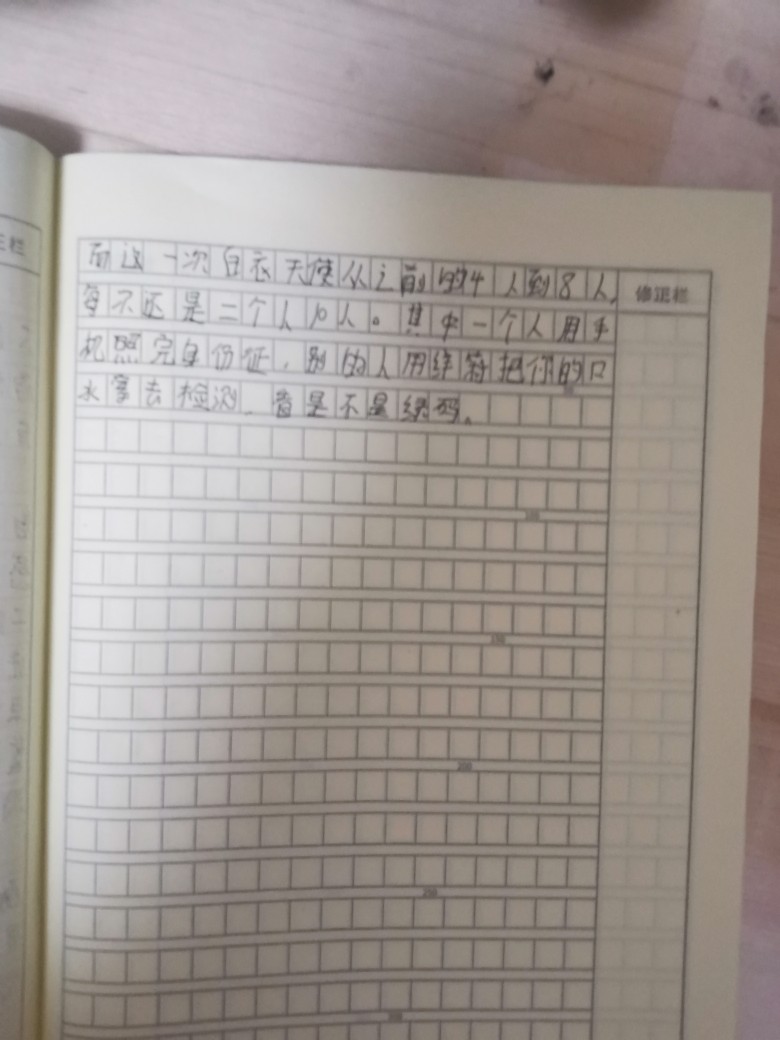 而这一次白衣天使从之前的4人到8人,
每不还是二个人10人。其中一个人用手
机照完身份证,别的人用绵签把你的口
水拿去检测、看是不是绿码。
修正栏